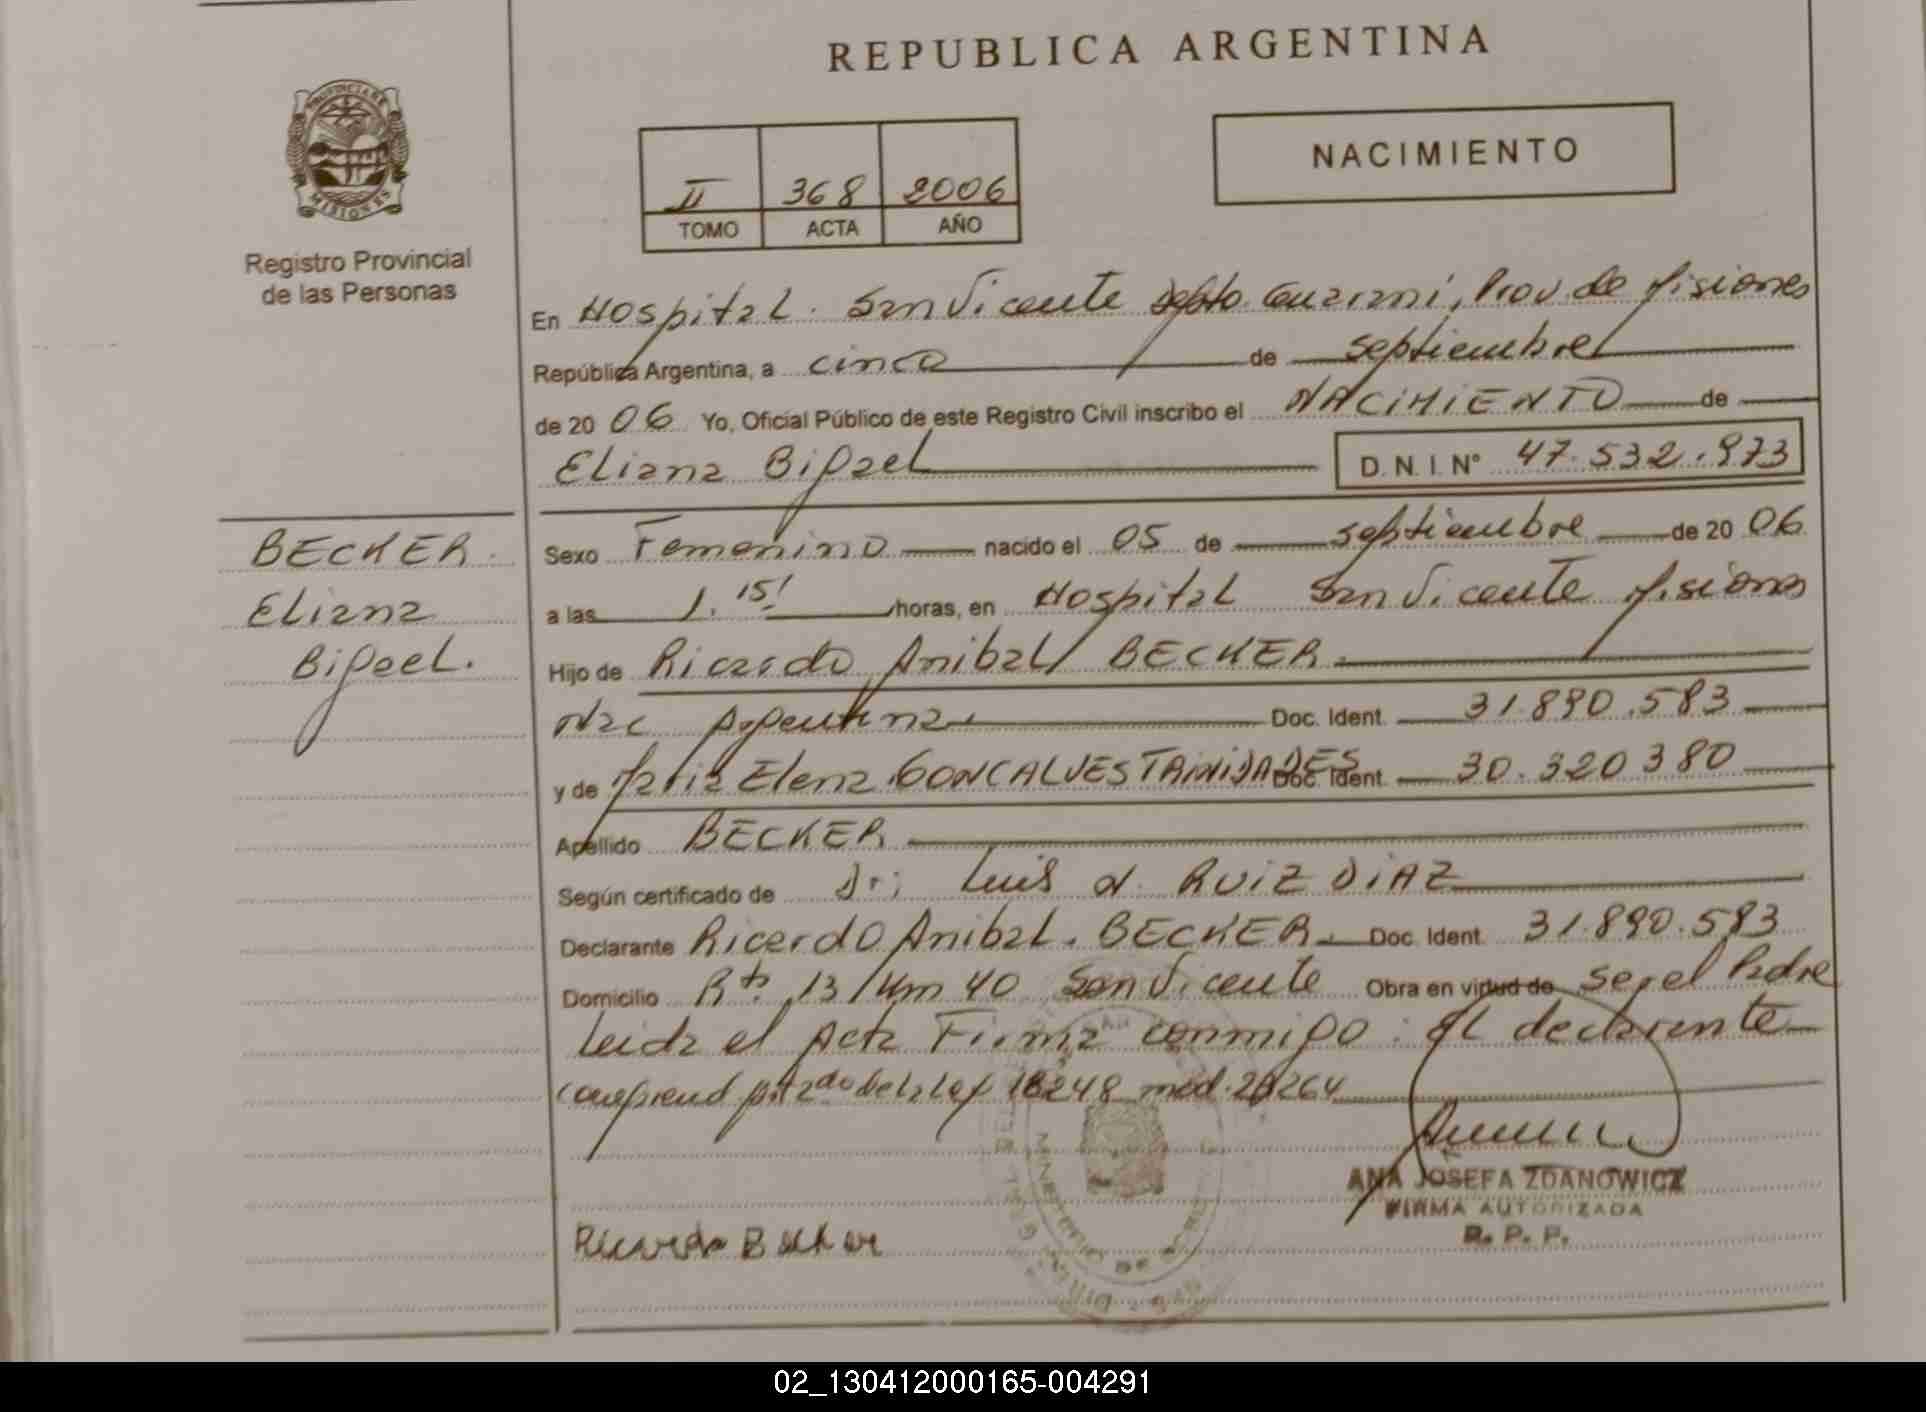 REPUBLICA ARGENTINA
PROVINCIA DE
MISIONES
Registro Provincial
de las Personas
NACIMIENTO
II 368 2006
TOMO ACTA AÑO
En Hospital. San Vicente Depto. Guarani, Prov. de Misiones
República Argentina, a cinco de septiembre
de 20 06 Yo, Oficial Público de este Registro Civil inscribo el NACIMIENTO de
Eliana Bigael D. N. I. N° 47.532.973
BECKER.
Eliana
Bigael.
Sexo Femenino nacido el 05 de septiembre de 20 06
a las 1.15! horas, en Hospital San Vicente Misiones
Hijo de Ricardo Anibal BECKER
Nac Argentina Doc. Ident. 31.890.583
y de Maria Elena GONCALVES Doc. Ident. 30.320 380
Apellido BECKER
Según certificado de Dr: Luis A. RUIZ DIAZ
Declarante Ricardo Anibal. BECKER. Doc. Ident. 31.890.583
Domicilio Rta. 13/Km 40 San Vicente Obra en virtud de ser el Padre
Leida el Acta Firma conmigo: el declarante
comprend art 2do de la Ley 18248 mod. 26264
ANA JOSEFA ZDANOWICZ
FIRMA AUTORIZADA
R. P. P.
Ricardo Becker
02_130412000165-004291